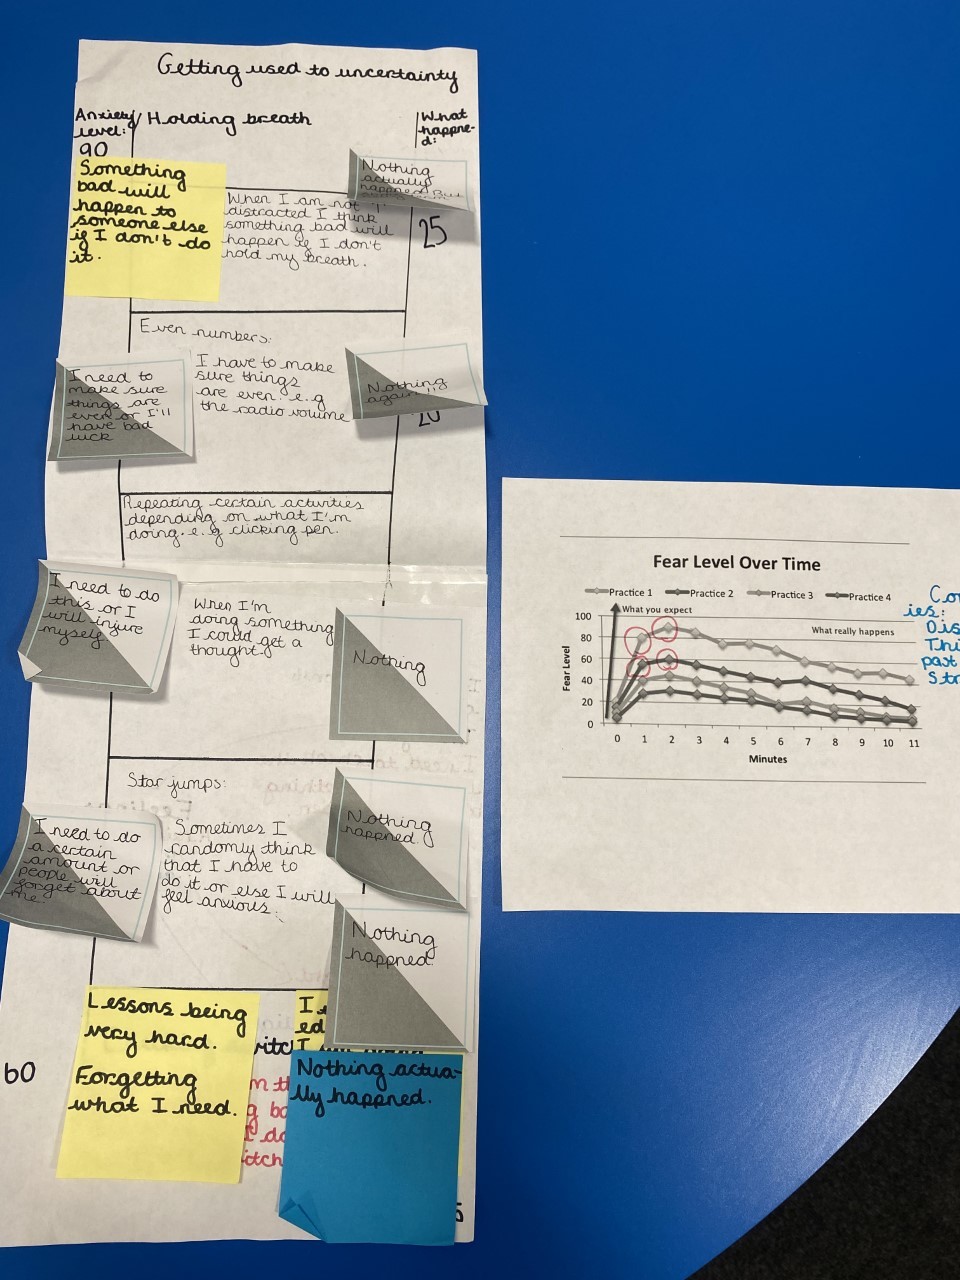 Getting used to uncertainty
Anxiety
level:
90
Holding breath
What
happne-
d:
Something
bad will
happen to
someone else
if I don't do
it.
When I am not
distracted I think
something bad will
happen if I don't
hold my breath.
Nothing
actually
happned But
25
Even numbers:
I need to
make sure
things are
even or I'll
have bad
luck
I have to make
sure things
are even. e.g
the radio volume
Nothing
again!!
20
Repeating certain activities
depending on what I'm
doing. e.g clicking pen.
I need to do
this or I
will injure
myself.
When I'm
doing something
I could get a
thought.
Nothing
Star jumps:
I need to do
a certain
amount or
people will
forget about
me.
Sometimes I
randomly think
that I have to
do it or else I will
feel anxious.
Nothing
happned.
Nothing
happned.
60
Lessons being
very hard.
Forgetting
what I need.
I
ed
itch
Nothing actua-
lly happned.
5
Fear Level Over Time
Practice 1 Practice 2 Practice 3 Practice 4
What you expect
What really happens
Fear Level
100
80
60
40
20
0
0 1 2 3 4 5 6 7 8 9 10 11
Minutes
Co
ies:
Dis
Thi
past
Str